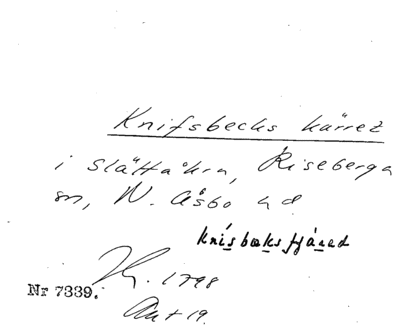 Knifsbecks kärret
i Slättåkra, Riseberga
sn, N. Åsbo hd
knisbæksfjäred
1798
Nr 7339.
Akt 19.